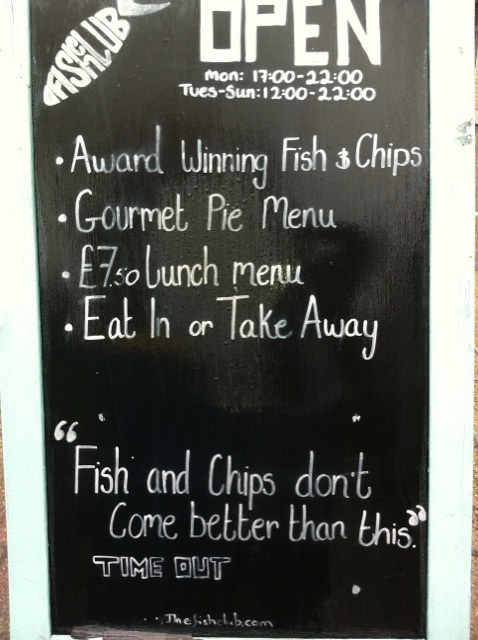 FISHCLUB
OPEN
Mon: 17:00-22:00
Tues-Sun: 12:00-22:00
• Award Winning Fish & Chips
• Gourmet Pie Menu
• £7.50 Lunch menu
• Eat In or Take Away
“Fish and Chips don't
Come better than this.”
TIME OUT
Thefishclub.com